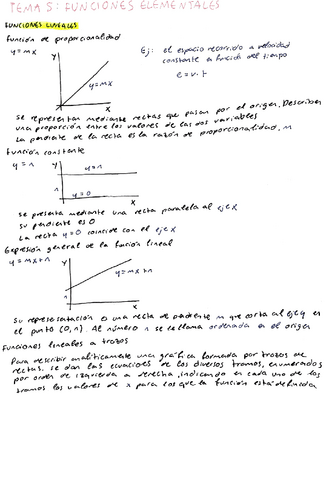 TEMA 5: FUNCIONES ELEMENTALES
FUNCIONES LINEALES
Función de proporcionalidad
y = mx
Y
y = mx
X
Ej: el espacio recorrido a velocidad
constante a función del tiempo
e = v · t
Se representan mediante rectas que pasan por el origen. Describen
una proporción entre los valores de las dos variables
La pendiente de la recta es la razón de proporcionalidad, m
Función constante
y = n
Y
y = n
y = 0
X
Se presenta mediante una recta paralela al eje X
Su pendiente es 0
La recta y = 0 coincide con el eje X
Expresión general de la función lineal
y = mx + n
Y
y = mx + n
n
X
Su representación es una recta de pendiente m que corta al eje y en
el punto (0, n). Al número n se le llama ordenada en el origen
Funciones lineales a trozos
Para describir analíticamente una gráfica formada por trozos de
rectas, se dan las ecuaciones de los diversos tramos, enumerados
por orden de izquierda a derecha, indicando en cada uno de los
tramos los valores de x para los que la función está definida